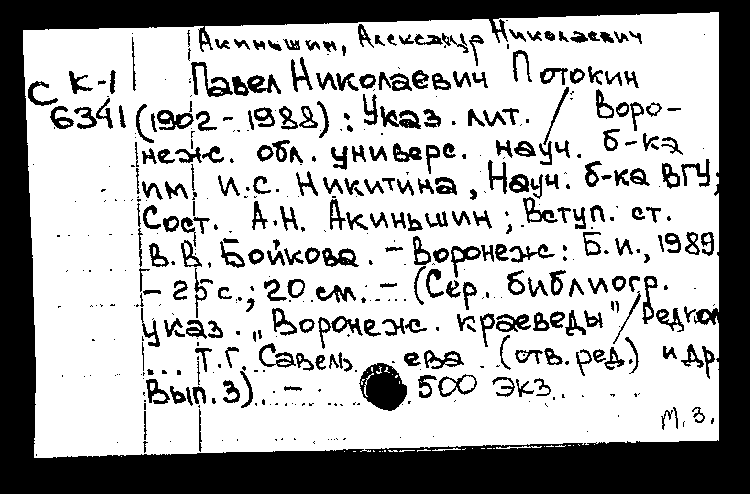 Акиньшин, Александр Николаевич
С К-1 Павел Николаевич Потокин
6341 (1902-1988): Указ. лит. / Воро-
неж. обл. универс. науч. б-ка
им. И.С. Никитина, Науч. б-ка ВГУ;
Сост. А.Н. Акиньшин; Вступ. ст.
В.В. Бойкова. - Воронеж: Б.и., 1989.
- 25 с.; 20 см. - (Сер. библиогр.
указ. „Воронеж. краеведы" / Редкол
... Т.Г. Савельева (отв. ред.) и др.
Вып. 3). - 500 экз.
М. З.